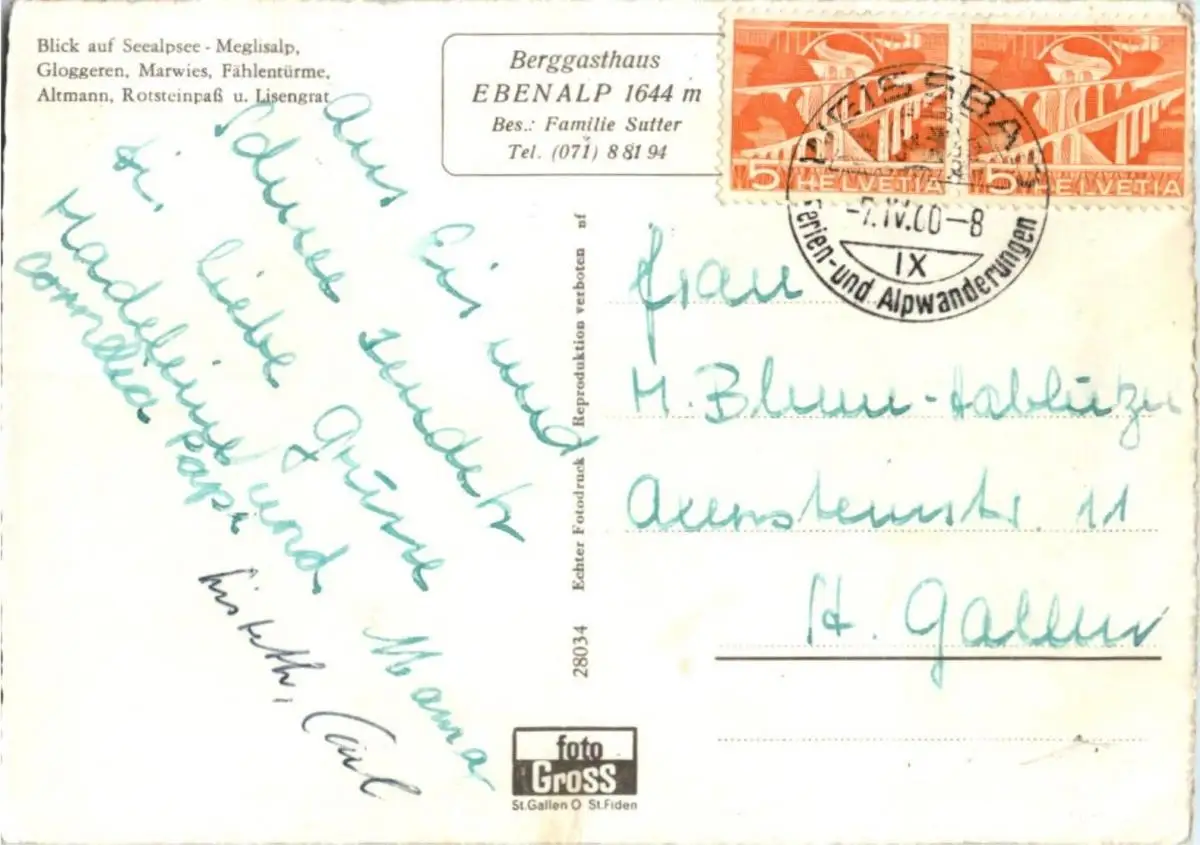 Blick auf Seealpsee - Meglisalp,
Gloggeren, Marwies, Fählentürme,
Altmann, Rotsteinpaß u. Lisengrat
Berggasthaus
EBENALP 1644 m
Bes.: Familie Sutter
Tel. (071) 8 81 94
5 HELVETIA
5 HELVETIA
WEISSBAD
-7.IV.60-8
IX
Ferien- und Alpwanderungen
Aus Eis und
Schnee sendet
Dir, liebe Grüsse Mama
Madeleine und
Cornelia Papi
Lisbeth, Carl
28034 Echter Fotodruck Reproduktion verboten nf
Frau
M. Blum-
11
St. Gallen
foto
Gross
St.Gallen O St.Fiden